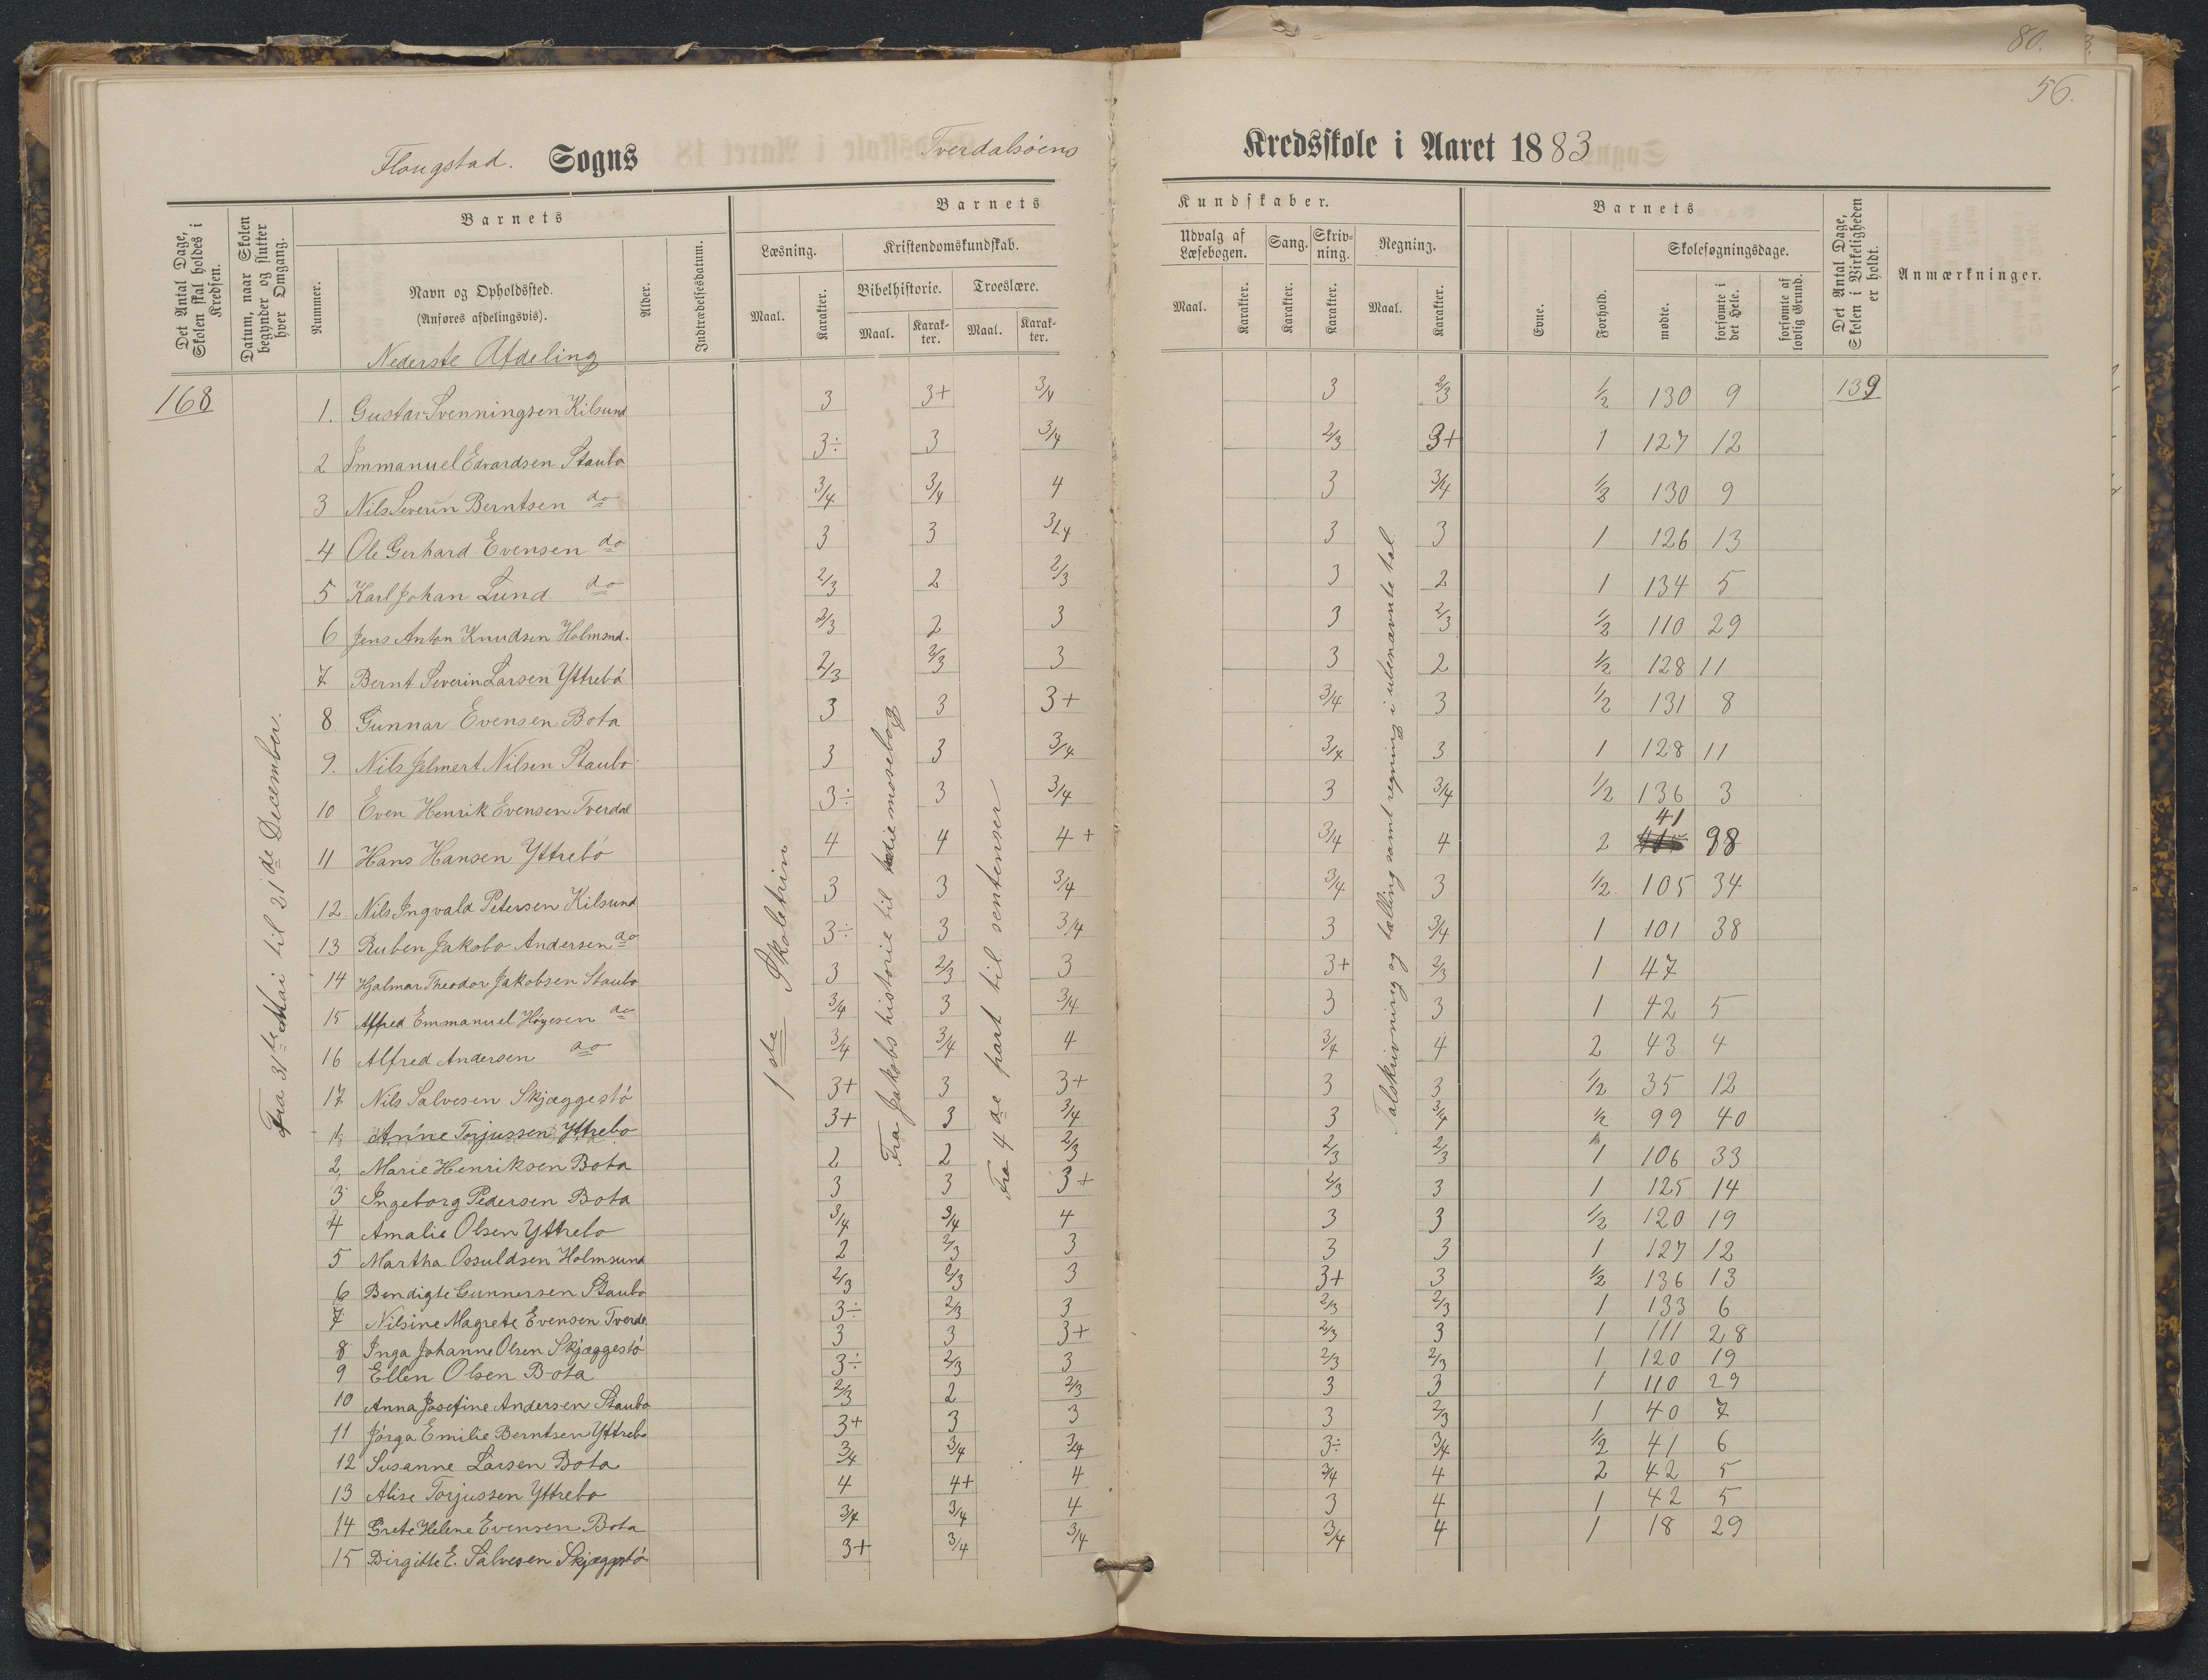 80.
56.
Flougstad. Sogns
Tverdalsöens Kredsskole i Aaret 1883
Det Antal Dage, Skolen skal holdes i Kredsen.
Datum, naar Skolen begynder og slutter hver Omgang.
Barnets
Nummer.
Navn og Opholdssted.
(Anføres afdelingsvis).
Alder.
Indtrædelsesdatum.
Barnets Kundskaber.
Læsning.
Kristendomskundskab.
Bibelhistorie.
Troeslære.
Maal. Karakter. Maal. Karakter. Maal. Karakter.
Udvalg af Læsebogen.
Sang.
Skrivning.
Regning.
Maal. Karakter. Karakter. Karakter. Maal. Karakter.
Barnets
Evne.
Forhold.
Skolesøgningsdage.
mødte.
forsømte i det Hele.
forsømte af lovlig Grund.
Det Antal Dage, Skolen i Virkeligheden er holdt.
Anmærkninger.
Nederste Afdeling
168
139
Fra 31te Mai til 21de December.
1ste Skoletrin
Fra Jakobs historie til die mosebog
Fra 4de part til sentenser
Talskrivning og tælling samt regning i ubenævnte tal.
1. Gustav Svenningsen Kilsund 3 3+ 3/4 3 2/3 1/2 130 9
2 Immanuel Edvardsen Staubo 3÷ 3 3/4 2/3 3+ 1 127 12
3 Nils Severin Berntsen do 3/4 3/4 4 3 3/4 1/2 130 9
4 Ole Gerhard Evensen do 3 3 3/4 3 3 1 126 13
5 Karl Johan Lund do 2/3 2 2/3 3 2 1 134 5
6 Jens Anton Knudsen Holmsnd. 2/3 2 3 3 2/3 1/2 110 29
7 Bernt Severin Larsen Yttrebö 2/3 2/3 3 3 2 1/2 128 11
8 Gunnar Evensen Bota 3 3 3+ 3/4 3 1/2 131 8
9. Nils Jelmert Nilsen Staubo 3 3 3/4 3/4 3 1 128 11
10 Even Henrik Evensen Tverdal 3÷ 3 3/4 3 3/4 1/2 136 3
11 Hans Hansen Yttrebö 4 4 4+ 3/4 4 2 41 98
12 Nils Ingvald Petersen Kilsund 3 3 3/4 3/4 3 1/2 105 34
13 Ruben Jakobo Andersen do 3÷ 3 3/4 3 3/4 1 101 38
14 Hjalmar Theodor Jakobsen Staubo 3 2/3 3 3+ 2/3 1 47
15 Alfred Emmanuel Höyesen do 3/4 3 3/4 3 3 1 42 5
16 Alfred Andersen do 3/4 3/4 4 3/4 4 2 43 4
17 Nils Salvesen Skjæggestö 3+ 3 3+ 3 3 1/2 35 12
1 Anne Torjussen Yttrebo 3+ 3 3/4 3 3/4 1/2 99 40
2 Marie Henriksen Bota 2 2 2/3 2/3 2/3 1 106 33
3 Ingeborg Pedersen Bota 3 3 3+ 2/3 3 1 125 14
4 Amalie Olsen Yttrebo 3/4 3/4 4 3 3 1/2 120 19
5 Martha Ossuldsen Holmsund 2 2/3 3 3 3 1 127 12
6 Bendigte Gunnersen Staubo 2/3 2/3 3 3+ 3 1/2 136 13
7 Nilsine Magrete Evensen Tverdl 3÷ 2/3 3 2/3 2/3 1 133 6
8 Inga Johanne Olsen Skjæggestö 3 3 3+ 2/3 3 1 111 28
9 Ellen Olsen Bota 3÷ 2/3 3 2/3 2/3 1 120 19
10 Anna Josefine Andersen Staubo 2/3 2 2/3 3 3 1 110 29
11 Jörga Emilie Berntsen Yttrebo 3+ 3 3 3 2/3 1 40 7
12 Susanne Larsen Bota 3/4 3/4 3/4 3÷ 3/4 1/2 41 6
13 Alise Torjussen Yttrebo 4 4+ 4 3/4 4 2 42 5
14 Grete Helene Evensen Bota 3/4 3/4 4 3 4 1 42 5
15 Birgitte E. Salvesen Skjæggestö 3+ 3/4 3/4 3/4 4 1 18 29